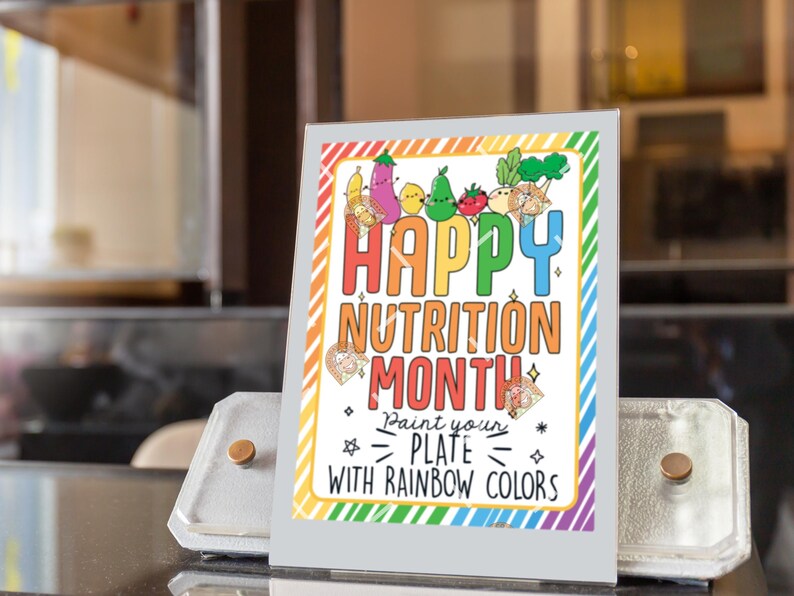 HAPPY
NUTRITION
MONTH
Paint your
PLATE
WITH RAINBOW COLORS